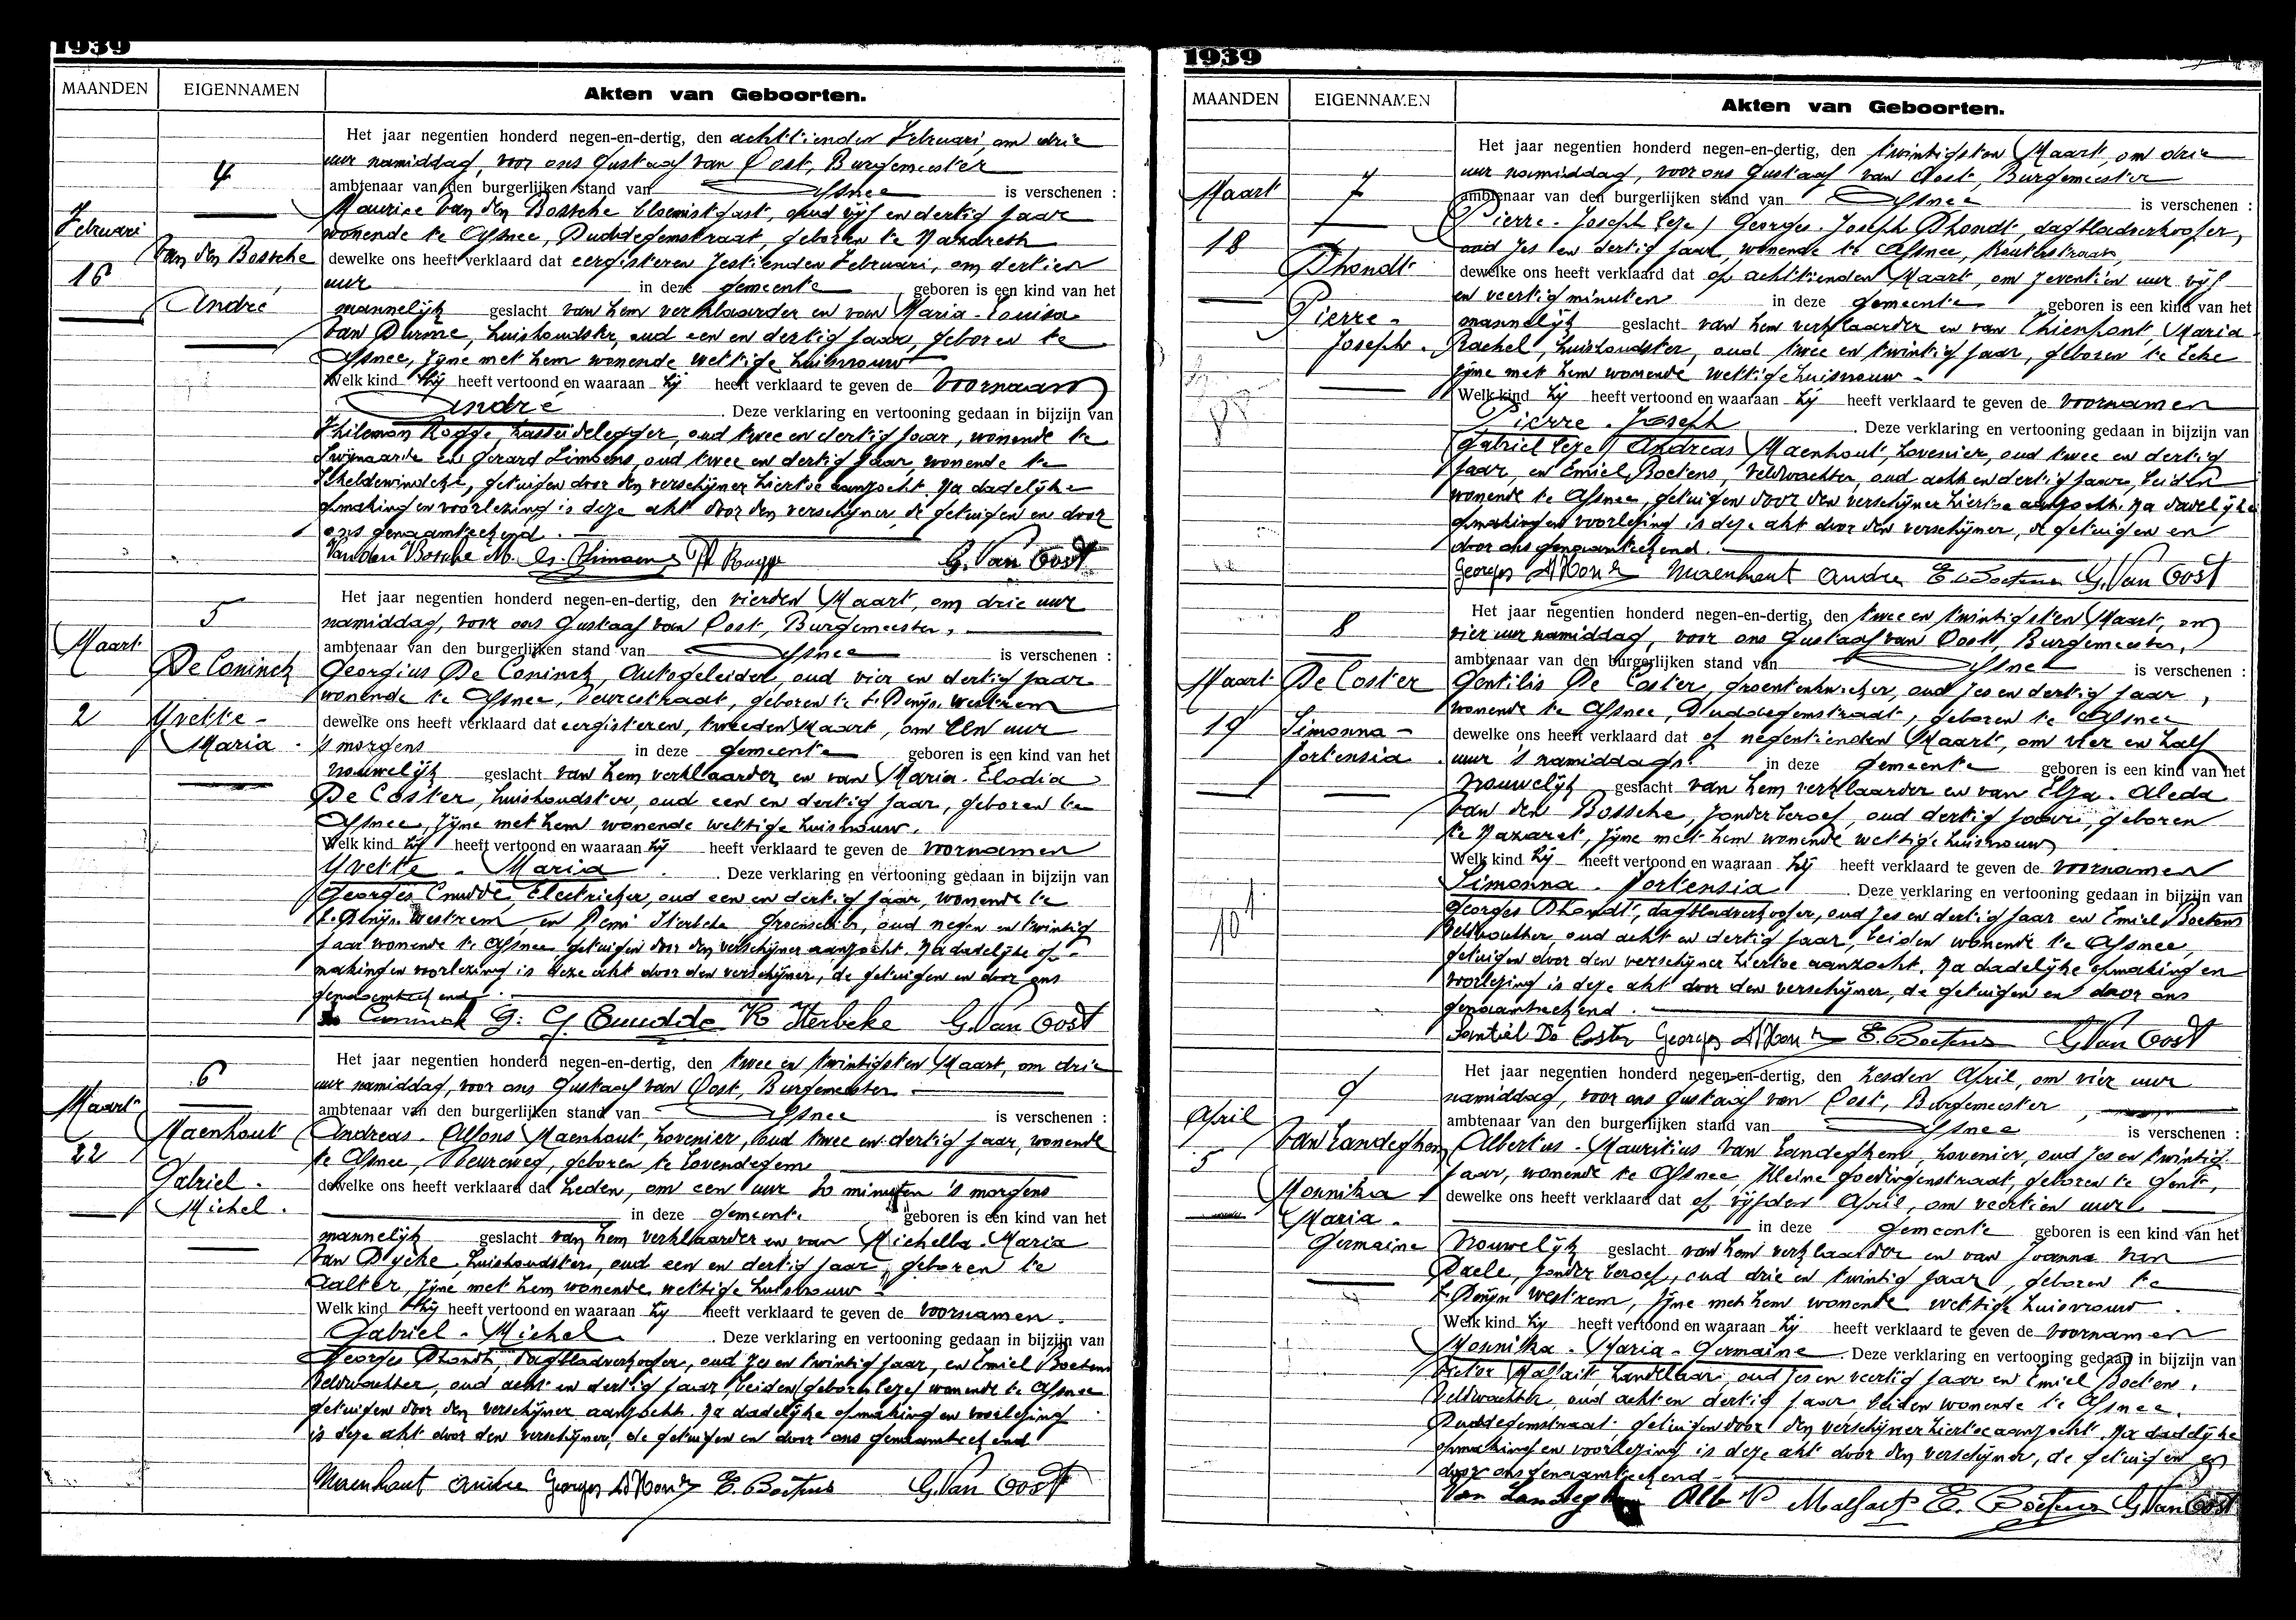 1939
MAANDEN
EIGENNAMEN
Akten van Geboorten.
4
Februari
16
Van den Bossche
André
Het jaar negentien honderd negen-en-dertig, den achttienden Februari, om drie
uur namiddag, voor ons Gustaaf van Oost, Burgemeester
ambtenaar van den burgerlijken stand van Afsnee is verschenen :
Maurice Van den Bossche bloemist gast, oud vijf en dertig jaar
wonende te Afsnee, Duddegemstraat, geboren te Nazareth
dewelke ons heeft verklaard dat eergisteren zestienden Februari, om dertien
uur in deze gemeente geboren is een kind van het
mannelijk geslacht van hem verklaarder en van Maria-Louisa
Van Durme, huishoudster, oud een en dertig jaar, geboren te
Afsnee, zijne met hem wonende wettige huisvrouw
Welk kind hij heeft vertoond en waaraan hij heeft verklaard te geven de voornaam
André. Deze verklaring en vertooning gedaan in bijzijn van
Philemon Rogge, kasseidelegger, oud twee en dertig jaar, wonende te
Zwijnaarde en Gerard Limoens, oud twee en dertig jaar, wonende te
Scheldewindeke, getuigen door den verschijner hiertoe aanzocht. Na dadelijke
opmaking en voorlezing is deze akt door den verschijner, de getuigen en door
ons genaamteekend.
Van den Bossche M. G. Van Oost
5
Maart
2
De Coninck
Yvette-
Maria.
Het jaar negentien honderd negen-en-dertig, den vierden Maart, om drie uur
namiddag, voor ons Gustaaf van Oost, Burgemeester,
ambtenaar van den burgerlijken stand van Afsnee is verschenen :
Georgius De Coninck, Autogeleider, oud vier en dertig jaar
wonende te Afsnee, Veurestraat, geboren te St Denijs Westrem
dewelke ons heeft verklaard dat eergisteren, tweeden Maart, om een uur
's morgens in deze gemeente geboren is een kind van het
vrouwelijk geslacht van hem verklaarder en van Maria-Elodia
De Coster, huishoudster, oud een en dertig jaar, geboren te
Afsnee, zijne met hem wonende wettige huisvrouw.
Welk kind hij heeft vertoond en waaraan hij heeft verklaard te geven de voornamen
Yvette-Maria. Deze verklaring en vertooning gedaan in bijzijn van
Georges Cnudde, Electrieker, oud een en dertig jaar, wonende te
St. Denijs Westrem en Remi Sterbeke oud negen en twintig
jaar wonende te Afsnee getuigen door den verschijner aanzocht. Na dadelijke op-
making en voorlezing is deze akt door den verschijner, de getuigen en door ons
genaamteekend.
De Coninck G. G. Cnudde R Sterbeke G. Van Oost
6
Maart
22
Maenhout
Gabriel.
Michel.
Het jaar negentien honderd negen-en-dertig, den twee en twintigsten Maart, om drie
uur namiddag, voor ons Gustaaf van Oost, Burgemeester.
ambtenaar van den burgerlijken stand van Afsnee is verschenen :
Andreas-Alfons Maenhout, hovenier, oud twee en dertig jaar, wonende
te Afsnee, Veureweg, geboren te Lovendegem
dewelke ons heeft verklaard dat heden, om een uur 20 minuten 's morgens
in deze gemeente geboren is een kind van het
mannelijk geslacht van hem verklaarder en van Michella-Maria
Van Dycke, huishoudster, oud een en dertig jaar, geboren te
Aalter, zijne met hem wonende wettige huisvrouw
Welk kind hij heeft vertoond en waaraan hij heeft verklaard te geven de voornamen.
Gabriel-Michel. Deze verklaring en vertooning gedaan in bijzijn van
Georges Dhondt, dagbladverkooper, oud zes en twintig jaar, en Emiel Boetens
Veldwachter, oud acht en dertig jaar, beiden geboren lezes wonende te Afsnee
getuigen door den verschijner aanzocht. Na dadelijke opmaking en voorlezing
is deze akt door den verschijner, de getuigen en door ons genaamteekend
Maenhout Andre Georges D'Hondt E. Boetens G. Van Oost
1939
MAANDEN
EIGENNAMEN
Akten van Geboorten.
7
Maart
18
Dhondt
Pierre-
Joseph.
Het jaar negentien honderd negen-en-dertig, den twintigsten Maart, om drie
uur namiddag, voor ons Gustaaf van Oost, Burgemeester
ambtenaar van den burgerlijken stand van Afsnee is verschenen :
Pierre-Joseph lezes Georges-Joseph Dhondt, dagbladverkooper,
oud zes en dertig jaar, wonende te Afsnee,
dewelke ons heeft verklaard dat op achttienden Maart, om zeventien uur vijf
en veertig minuten in deze gemeente geboren is een kind van het
mannelijk geslacht van hem verklaarder en van Thienpont, Maria
Rachel, huishoudster, oud twee en twintig jaar, geboren te Eeke
zijne met hem wonende wettige huisvrouw-
Welk kind hij heeft vertoond en waaraan hij heeft verklaard te geven de voornamen
Pierre-Joseph. Deze verklaring en vertooning gedaan in bijzijn van
Gabriel lezes Andreas Maenhout, hovenier, oud twee en dertig
jaar, en Emiel Boetens, Veldwachter, oud acht en dertig jaar, beiden
wonende te Afsnee, getuigen door den verschijner hiertoe aanzocht. Na dadelijke
opmaking en voorlezing is deze akt door den verschijner, de getuigen en
door ons genaamteekend.
Georges D'Hondt Maenhout Andre E. Boetens G. Van Oost
8
Maart
19
De Coster
Simonna-
Hortensia
Het jaar negentien honderd negen-en-dertig, den twee en twintigsten Maart, om
vier uur namiddag, voor ons Gustaaf van Oost, Burgemeester,
ambtenaar van den burgerlijken stand van Afsnee is verschenen :
Gentilis De Coster, groentenkweeker, oud zes en dertig jaar,
wonende te Afsnee, Duddegemstraat, geboren te Afsnee
dewelke ons heeft verklaard dat op negentienden Maart, om vier en half
uur 's namiddags in deze gemeente geboren is een kind van het
vrouwelijk geslacht van hem verklaarder en van Elza-Aleda
Van den Bossche, zonder beroep, oud dertig jaar, geboren
te Nazaret, zijne met hem wonende wettige huisvrouw
Welk kind hij heeft vertoond en waaraan hij heeft verklaard te geven de voornamen
Simonna-Hortensia. Deze verklaring en vertooning gedaan in bijzijn van
Georges Dhondt, dagbladverkooper, oud zes en dertig jaar en Emiel Boetens
Veldwachter oud acht en dertig jaar, beiden wonende te Afsnee,
getuigen door den verschijner hiertoe aanzocht. Na dadelijke opmaking en
voorlezing is deze akt door den verschijner, de getuigen en door ons
genaamteekend.
De Coster Georges D'Hondt E. Boetens G. Van Oost
9
April
5
Van Landeghem
Monnika
Maria-
Germaine
Het jaar negentien honderd negen-en-dertig, den zesden April, om vier uur
namiddag, voor ons Gustaaf van Oost, Burgemeester,
ambtenaar van den burgerlijken stand van Afsnee is verschenen :
Albertus-Mauritius Van Landeghem, hovenier, oud zes en twintig
jaar, wonende te Afsnee, Kleine Goedingenstraat, geboren te Gent,
dewelke ons heeft verklaard dat op vijfden April, om veertien uur
in deze gemeente geboren is een kind van het
vrouwelijk geslacht van hem verklaarder en van Joanna Van
Daele, zonder beroep, oud drie en twintig jaar, geboren te
St Denijs Westrem, zijne met hem wonende wettige huisvrouw.
Welk kind hij heeft vertoond en waaraan hij heeft verklaard te geven de voornamen
Monnika-Maria-Germaine. Deze verklaring en vertooning gedaan in bijzijn van
Victor Malfait, handelaar oud zes en veertig jaar en Emiel Boetens,
Veldwachter, oud acht en dertig jaar, beiden wonende te Afsnee,
Duddegemstraat getuigen door den verschijner hiertoe aanzocht. Na dadelijke
opmaking en voorlezing is deze akt door den verschijner, de getuigen en
door ons genaamteekend
Van Landeghem Alb V Malfait E. Boetens G. Van Oost